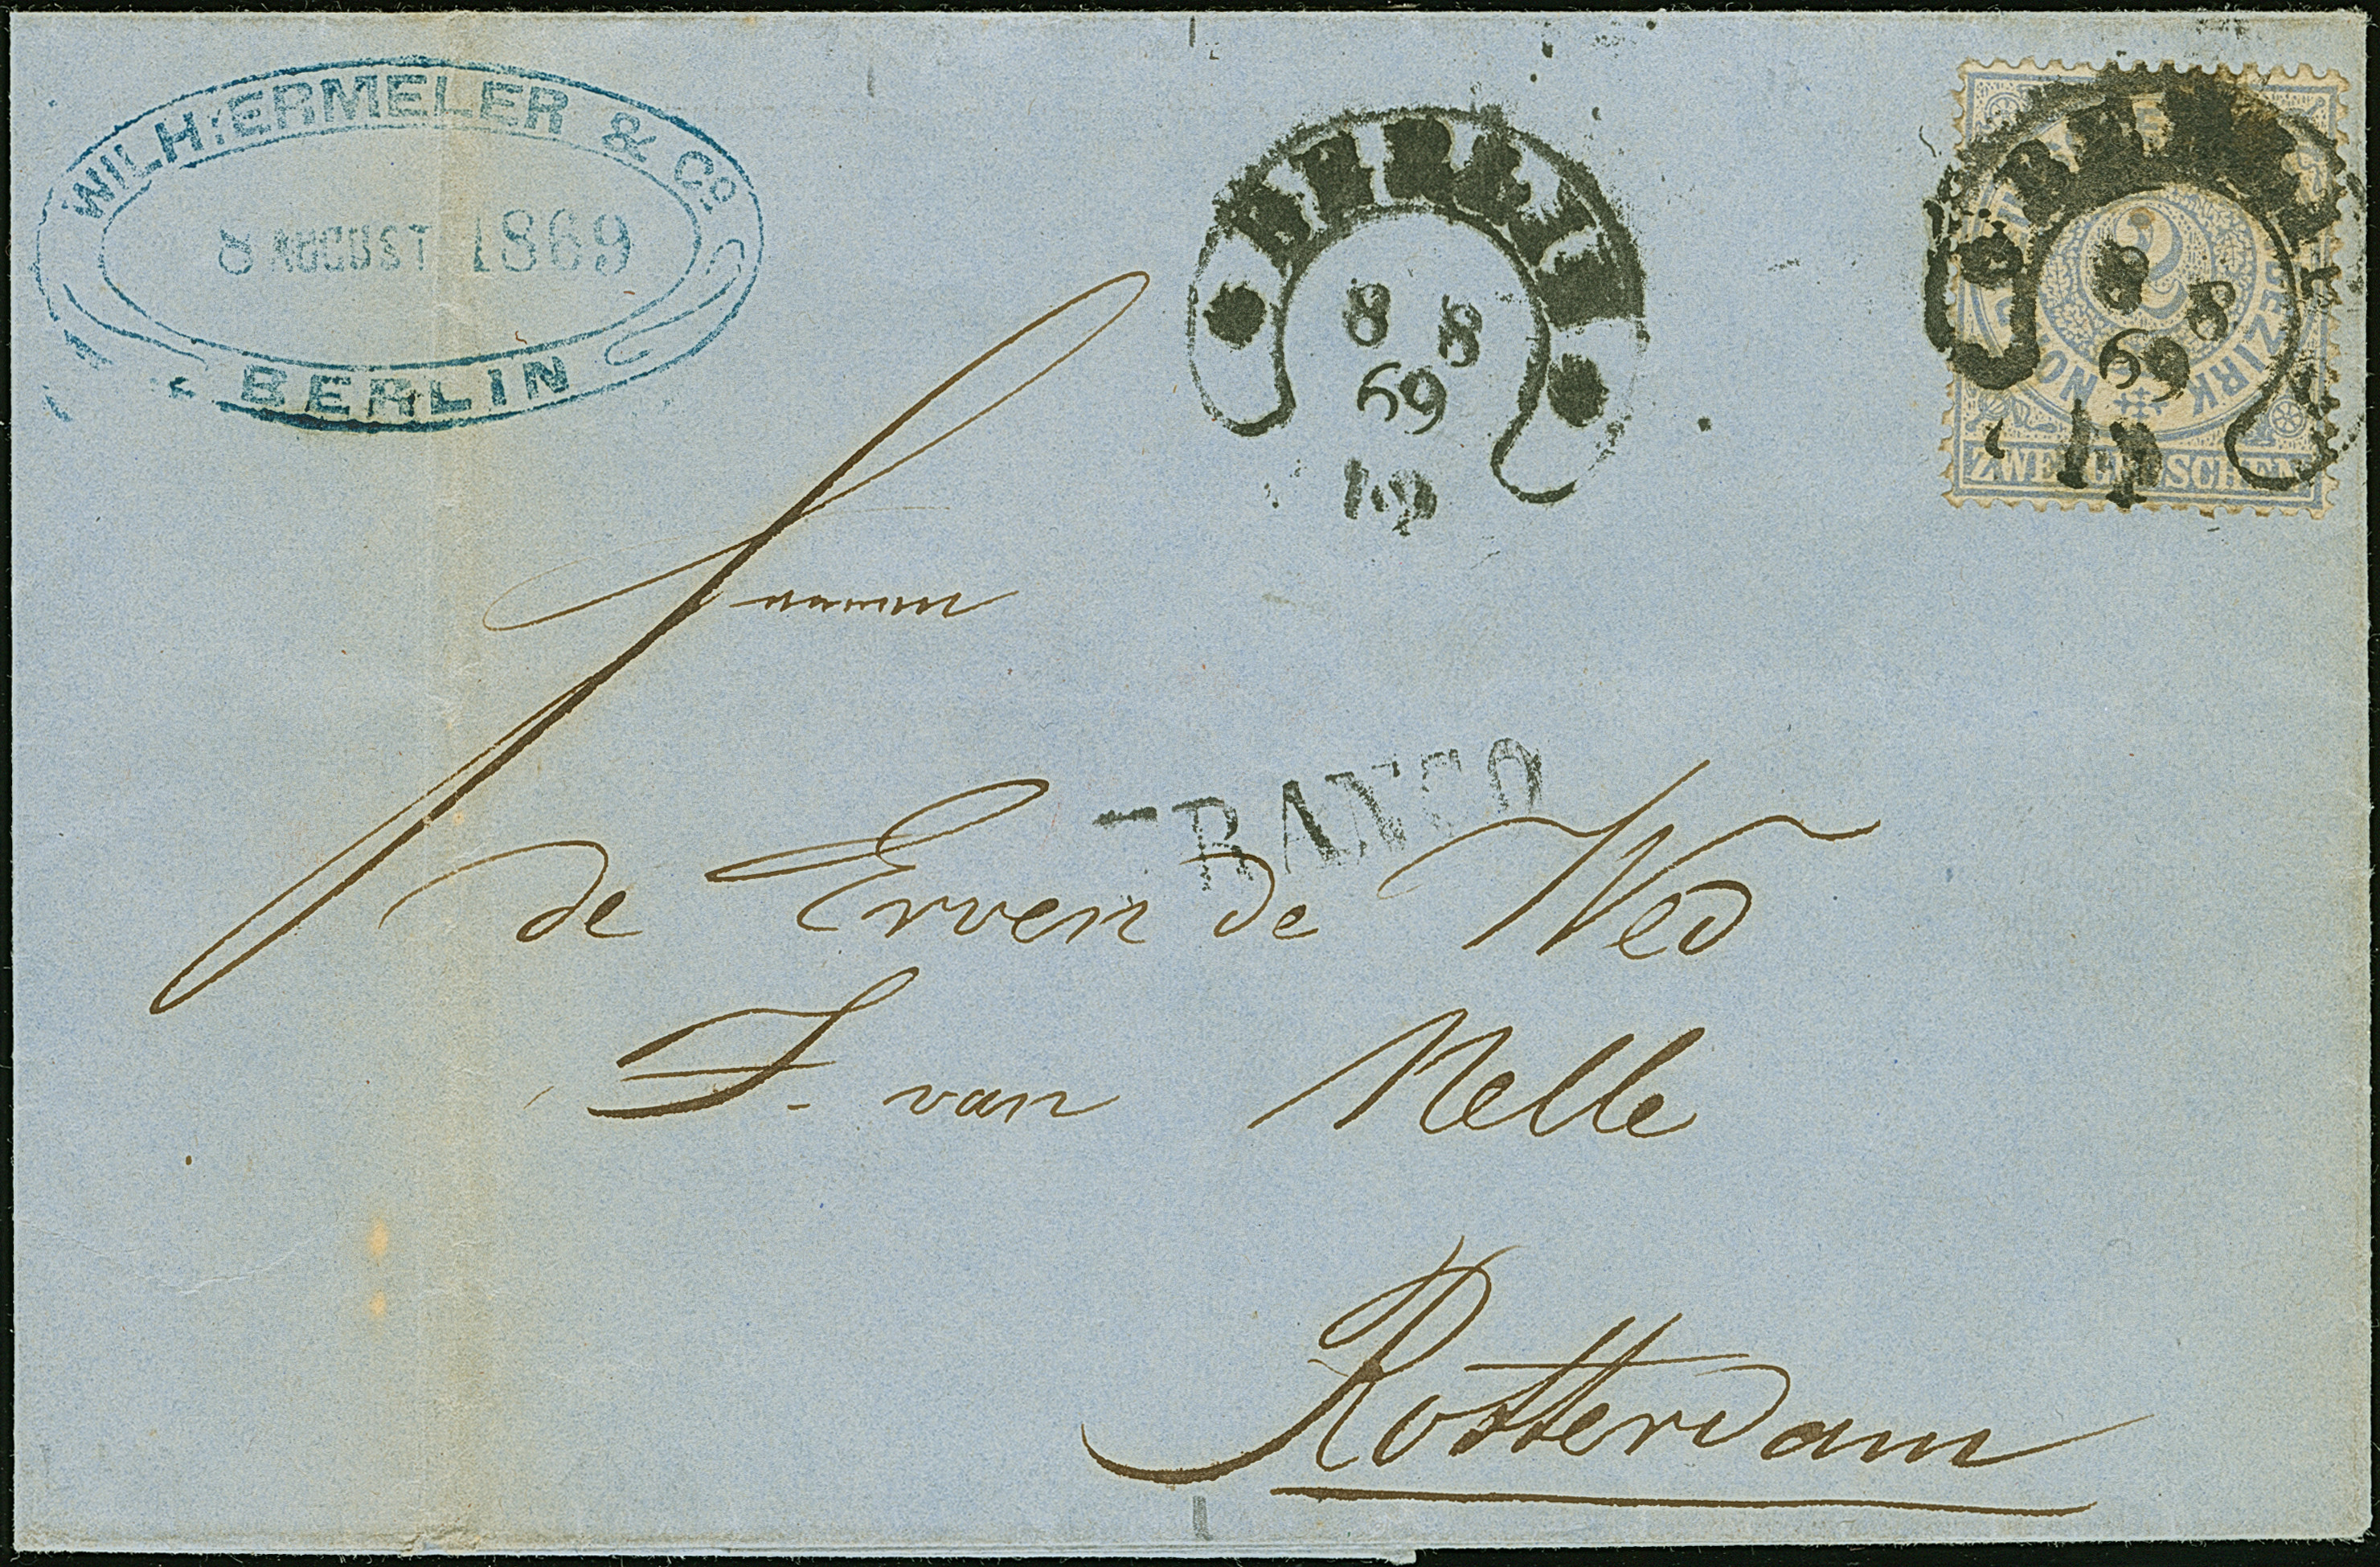 WILH: ERMELER & Co.
8 AUGUST 1869
BERLIN
BERLIN
8 8
69
BERLIN
8 8
69
2
NORDD. POSTBEZIRK
ZWEI GROSCHEN
FRANCO
de Erven de Wed
J. van Nelle
Rotterdam